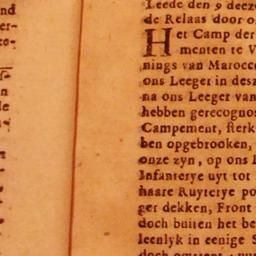 nd
er-
Leede den 9 deeze
de Relaas door o
Het Camp der
menten te V
nings van Marocco
ons Leeger in desz
na ons Leeger van
hebben gerecognos
Campement, sterk
ben opgebrooken,
onze zyn, op ons L
Infanterye uyt tot
haare Ruyterye po
ger dekken, Front
doch buiten het be
leenlyk in eenige S